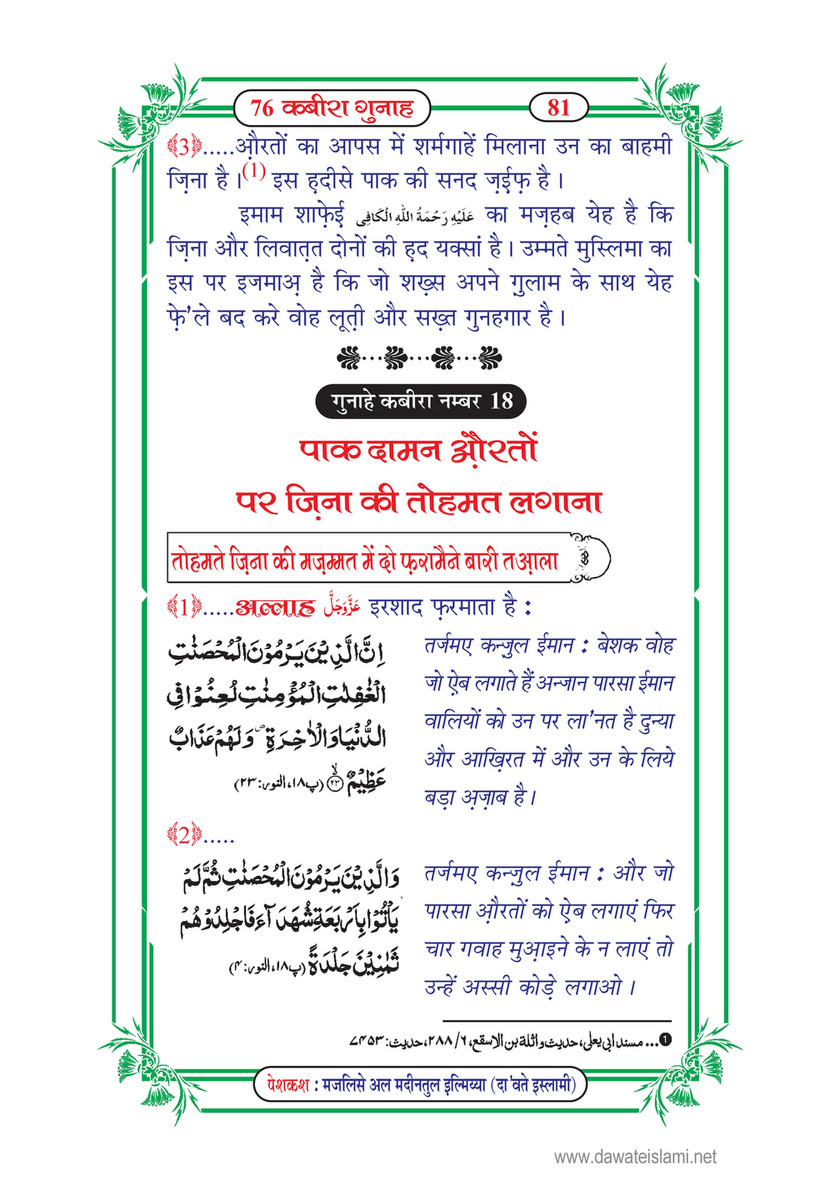 76 कबीरा गुनाह 81
﴾3﴿.....औ़रतों का आपस में शर्मगाहें मिलाना उन का बाहमी
ज़िना है।(1) इस ह़दीसे पाक की सनद ज़ई़फ़ है।
इमाम शाफ़ेई عَلَيْهِ رَحْمَةُ اللهِ الْكَافِى का मज़हब येह है कि
ज़िना और लिवात़त दोनों की ह़द यक्सां है। उम्मते मुस्लिमा का
इस पर इजमाअ़ है कि जो शख़्स अपने ग़ुलाम के साथ येह
फ़े'ले बद करे वोह लूत़ी और सख़्त गुनहगार है।
गुनाहे कबीरा नम्बर 18
पाक दामन औ़रतों
पर ज़िना की तोहमत लगाना
तोहमते ज़िना की मज़म्मत में दो फ़रामैने बारी तआ़ला
﴾1﴿.....अल्लाह عَزَّوَجَلَّ इरशाद फ़रमाता है :
اِنَّ الَّذِيْنَ يَرْمُوْنَ الْمُحْصَنٰتِ
الْغٰفِلٰتِ الْمُؤْمِنٰتِ لُعِنُوْا فِى
الدُّنْيَا وَ الْاٰخِرَةِ ۪ وَ لَهُمْ عَذَابٌ
عَظِيْمٌ ۙ﴿۲۳﴾ (پ۱۸، النور: ۲۳)
तर्जमए कन्ज़ुल ईमान : बेशक वोह
जो ऐब लगाते हैं अन्जान पारसा ईमान
वालियों को उन पर ला'नत है दुन्या
और आख़िरत में और उन के लिये
बड़ा अ़ज़ाब है।
﴾2﴿.....
وَ الَّذِيْنَ يَرْمُوْنَ الْمُحْصَنٰتِ ثُمَّ لَمْ
يَاْتُوْا بِاَرْبَعَةِ شُهَدَآءَ فَاجْلِدُوْهُمْ
ثَمٰنِيْنَ جَلْدَةً (پ۱۸، النور: ۴)
तर्जमए कन्ज़ुल ईमान : और जो
पारसा औ़रतों को ऐब लगाएं फिर
चार गवाह मुआ़इने के न लाएं तो
उन्हें अस्सी कोड़े लगाओ।
❶... مسند ابی یعلی، حدیث واثلة بن الاسقع، ۶/ ۲۸۸، حدیث: ۷۴۵۳
पेशकश : मजलिसे अल मदीनतुल इ़ल्मिय्या (दा'वते इस्लामी)
www.dawateislami.net